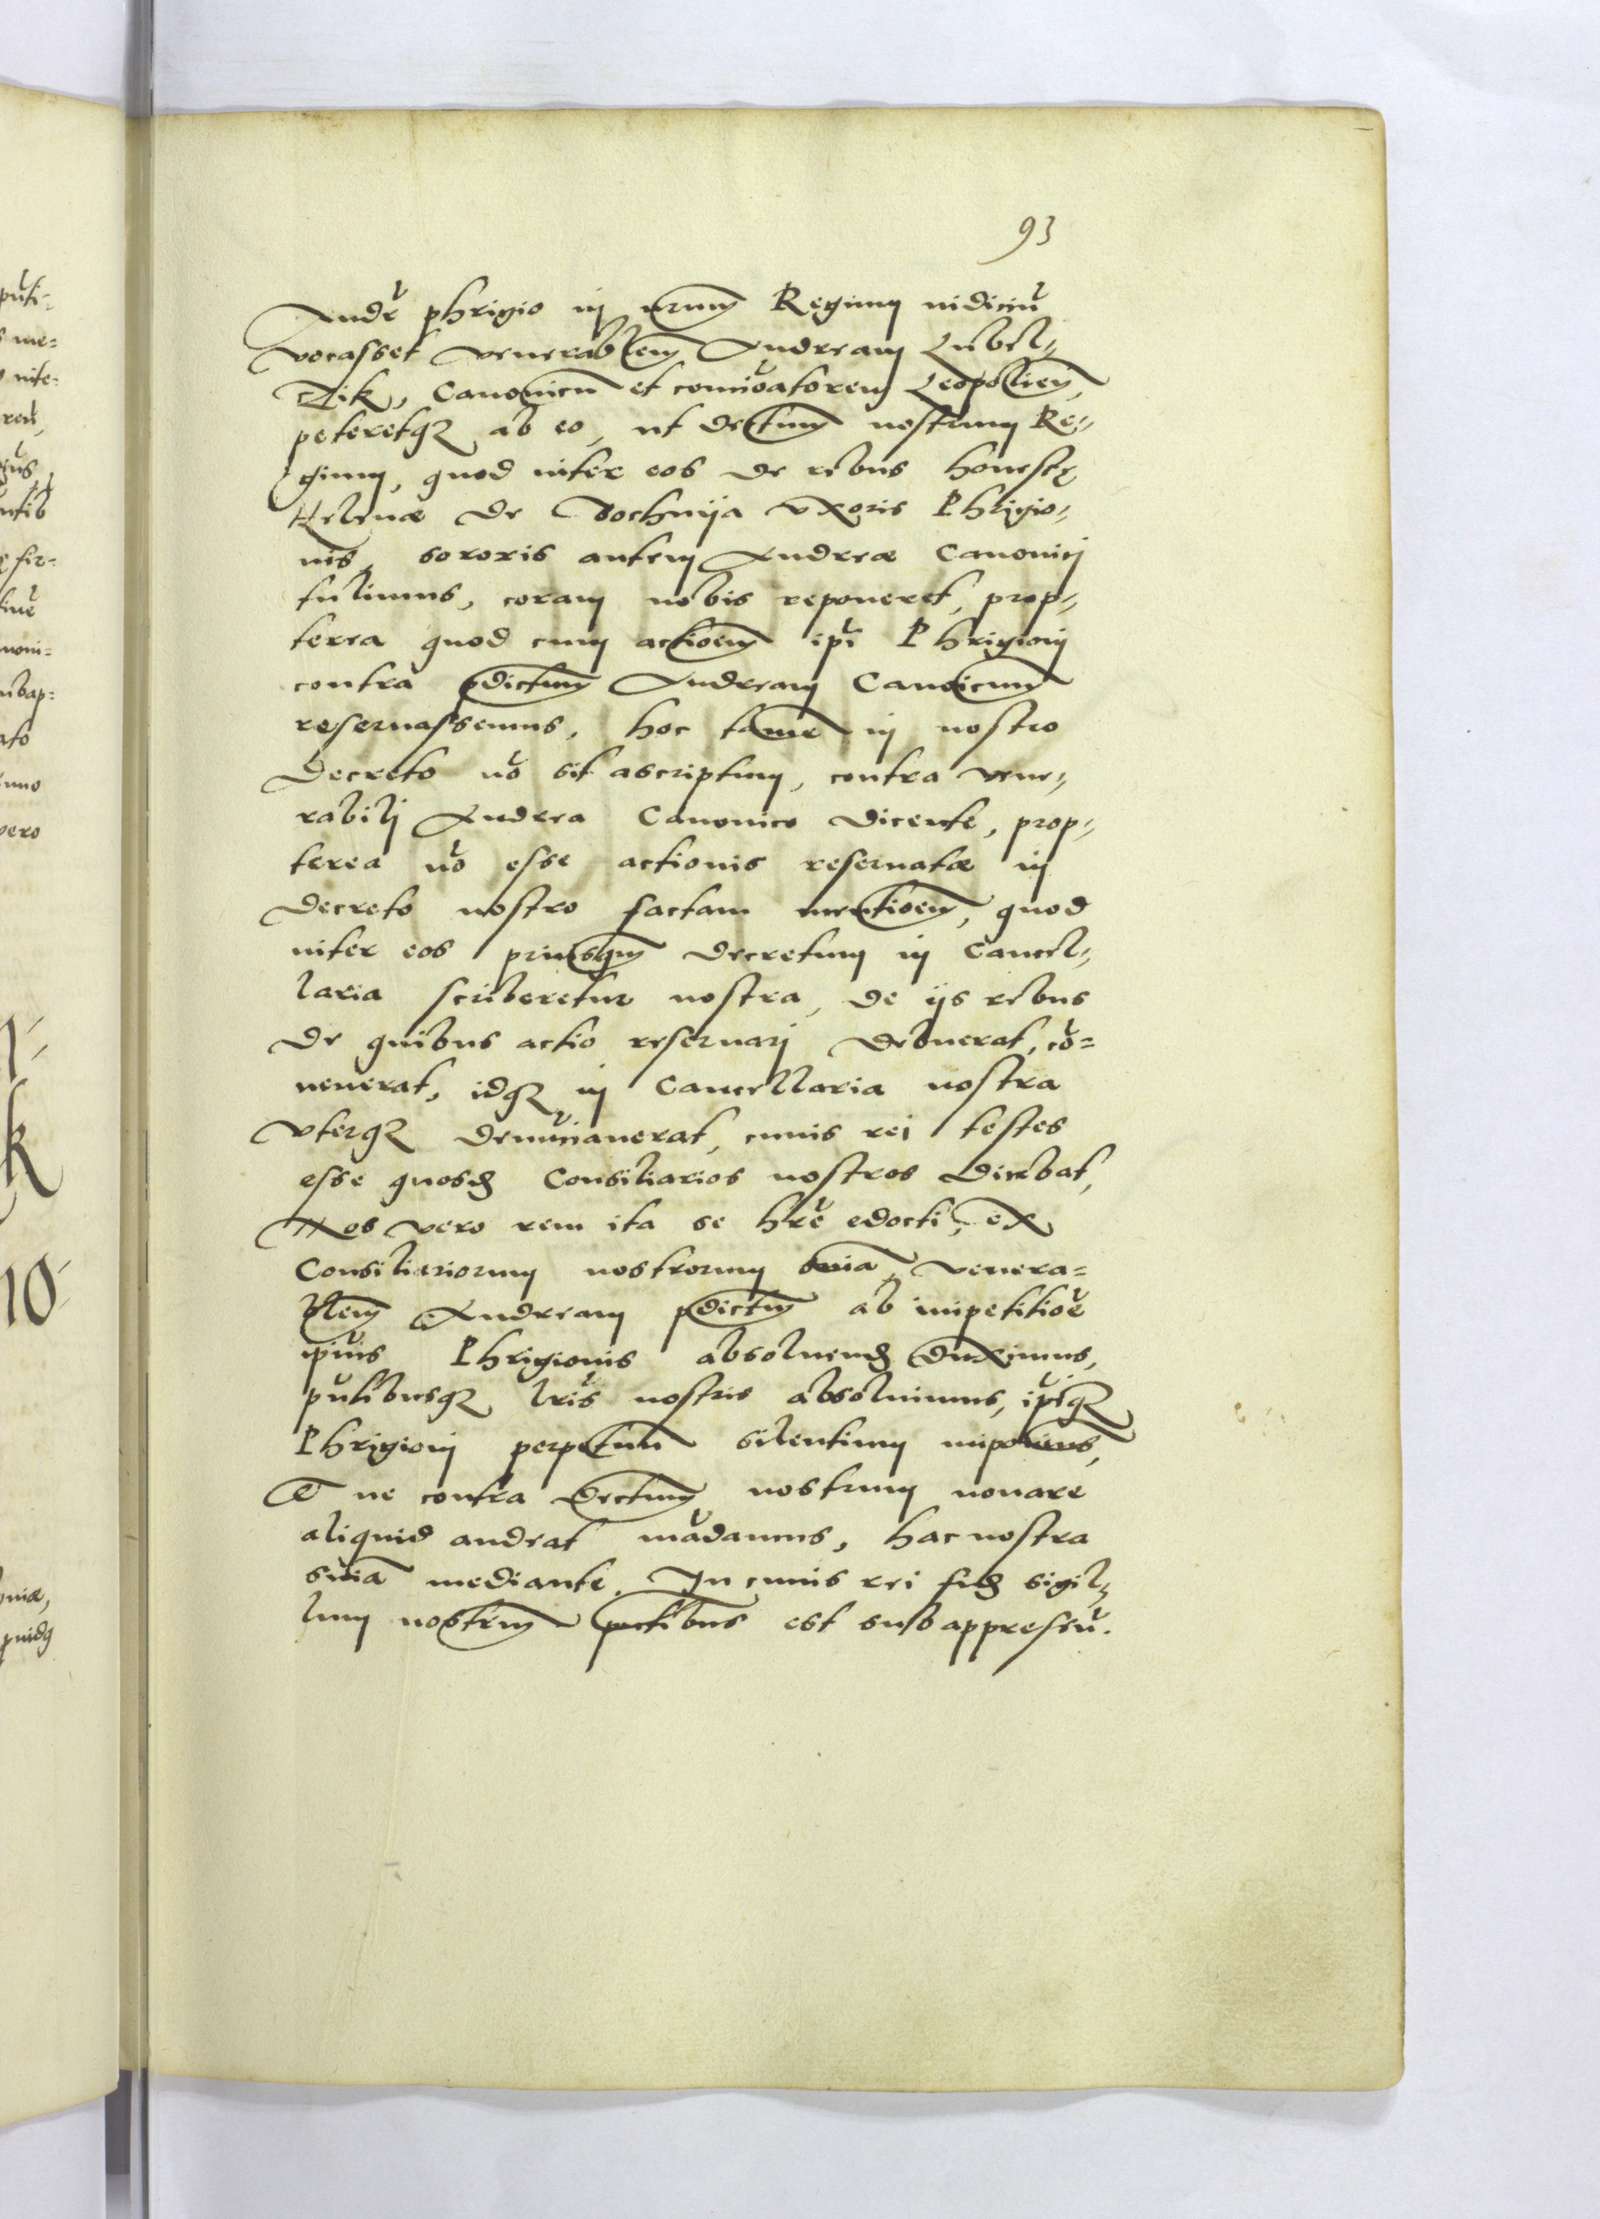 93
Andr̃ phrigio in nr̃um Regium iudiciũ
vocasset venerablem Andream Lubel„
czik, Canonicũ et concio͠atorem Leopolien̄,
peteretq3 ab eo, ut dectum nostrum Re„
gium, quod inter eos de rebus honestę
Helenæ de Bochnija vxoris Phrigio„
nis, sororis autem Andreæ Canonici
tulimus, coram nobis reponeret, prop„
terea quod cum actioem ip̃i Phrigioni
contra p̃dictum Andream Canoicum
reseruassemus, hoc tamē in nostro
Decreto nõ sit ascriptum, contra vene„
rabili Andrea Canonico dicente, prop„
terea nõ esse actionis reseruatæ in
Decreto nostro factam mentioem, quod
inter eos priusqm̃ decretum in Cancel„
laria scriberetur nostra, de ijs rebus
de quibus actio reseruari debuerat, cõ=
uenerat, idq3 in Cancellaria nostra
vterq3 denũcianerat, cuius rei testes
esse quosd̃ Consiliarios nostros dicebat,
Nos vero rem ita se hr̃e edocti, ex
Consiliariorum nostrorum sñia, venera=
blem Andream p̃dictm̃ ab impetitiõe
ip̃ius Phrigionis absoluend̃ duximus,
pñtibusq3 lr̃is nostris absoluimus, ip̃iq3
Phrigioni perpetuũ silentium imponimus,
Et ne contra Dectum nostrum nouare
aliquid audeat mãdamus, hac nostra
sñia mediante. In cuius rei fid̃ sigil„
lum nostrm̃ pñtibus est subappressũ.